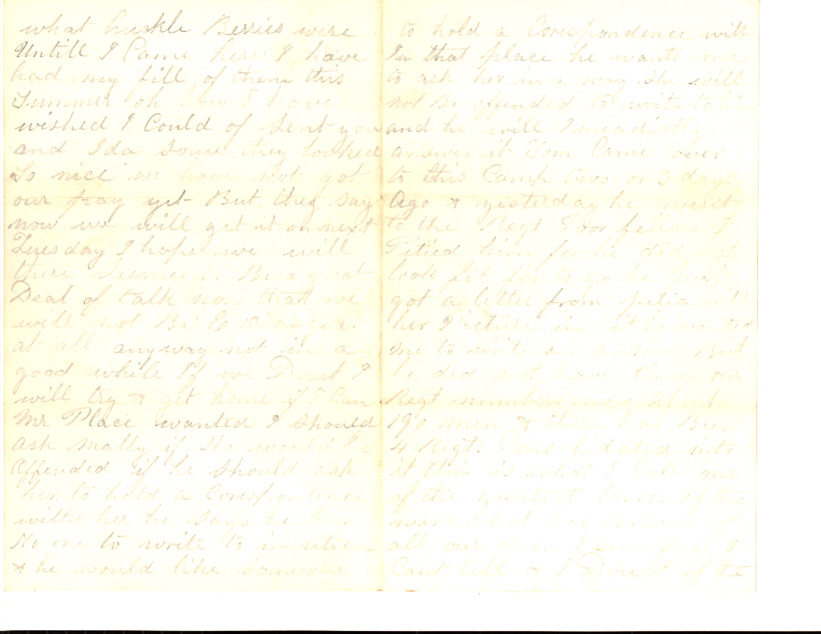 what huckle Berries were
Untill I Came here I have
had my fill of them this
Summer oh how I have
wished I Could of Sent you
and Ida Some they looked
So nice we have not got
our pay yet But they Say
now we will get it on next
Tuesday I hope we will
there Seemes to Be a great
Deal of talk now that we
will not Be
at all anyway not in a
good while If we Dont I
will try & get home if I Can
Mr Place wanted I Should
ask Matty if She would Be
Offended if he Should ask
her to hold a Corespondence
with her he Says he has
No one to write to
& he would like Someone
to hold a Corespondence with
In that place he wants me
to ask her in a way She will
not Be offended to write to him
and he will Imeadiatly
answer it Tom Came over
to this Camp two or 3 days
Ago & yesterday he went
to the Regt Poor fellow I
Pitied him for he did not
look fit for to go he
got a letter from Julia with
her Picture in it he wanted
me to write an answer But
he did not have time our
Regt numbers now about
190 men & it has Been
4 Regts Consolidated into
it this is what I Call one
of the greatest of the
war
all our I
Cant tell & I the